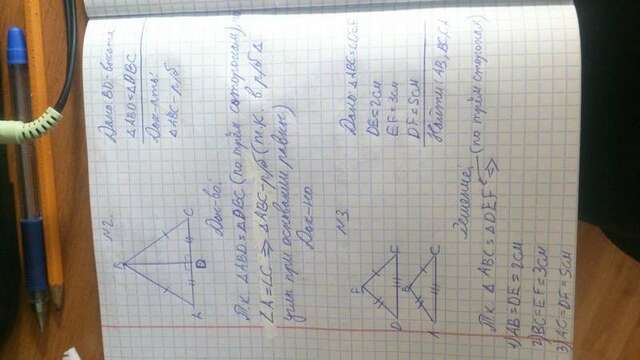 №2.
Дано: BD-высота
△ABD=△DBC
Док-ать:
△ABC-р/б
B
A
D
C
Док-во:
Тк △ABD=△DBC (по трём сторонам), то
∠A=∠C ⇒ △ABC-р/б (т.к. в р/б △
углы при основании равны)
Док-но
№3
Дано: △ABC=△DEF
DE=2см
EF=3см
DF=5см
Найти: AB, BC, CA
D
C
B
A
C
Решение:
Тк △ABC=△DEF (по трём сторонам)
⇒
1) AB=DE=2см
2) BC=EF=3см
3) AC=DF=5см